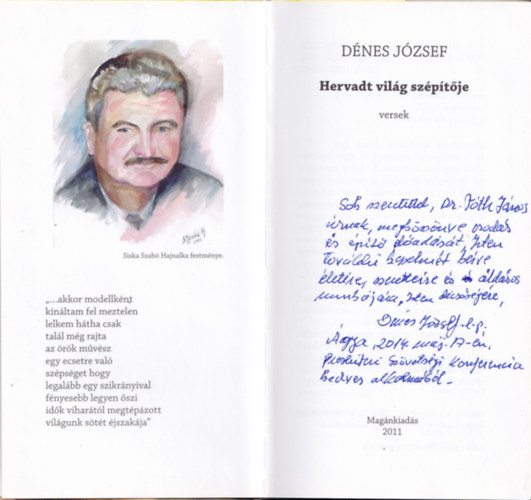 Siska Szabó Hajnalka festménye.
„...akkor modellként
kínáltam fel meztelen
lelkem hátha csak
talál még rajta
az örök művész
egy ecsetre való
szépséget hogy
legalább egy szikrányival
fényesebb legyen őszi
idők viharától megtépázott
világunk sötét éjszakája”
DÉNES JÓZSEF
Hervadt világ szépítője
versek
Sok szeretettel, Dr. Tóth János
úrnak, megköszönve csodás
és építő előadását, Isten
további kegyelmét kérve
életére, szeretteire és áldásos
munkájára, Isten dicsőségére,
Dénes József l.p.
2014 máj. 17-én,
Presbiteri Szövetségi Konferencia
kedves alkalmából.
Magánkiadás
2011